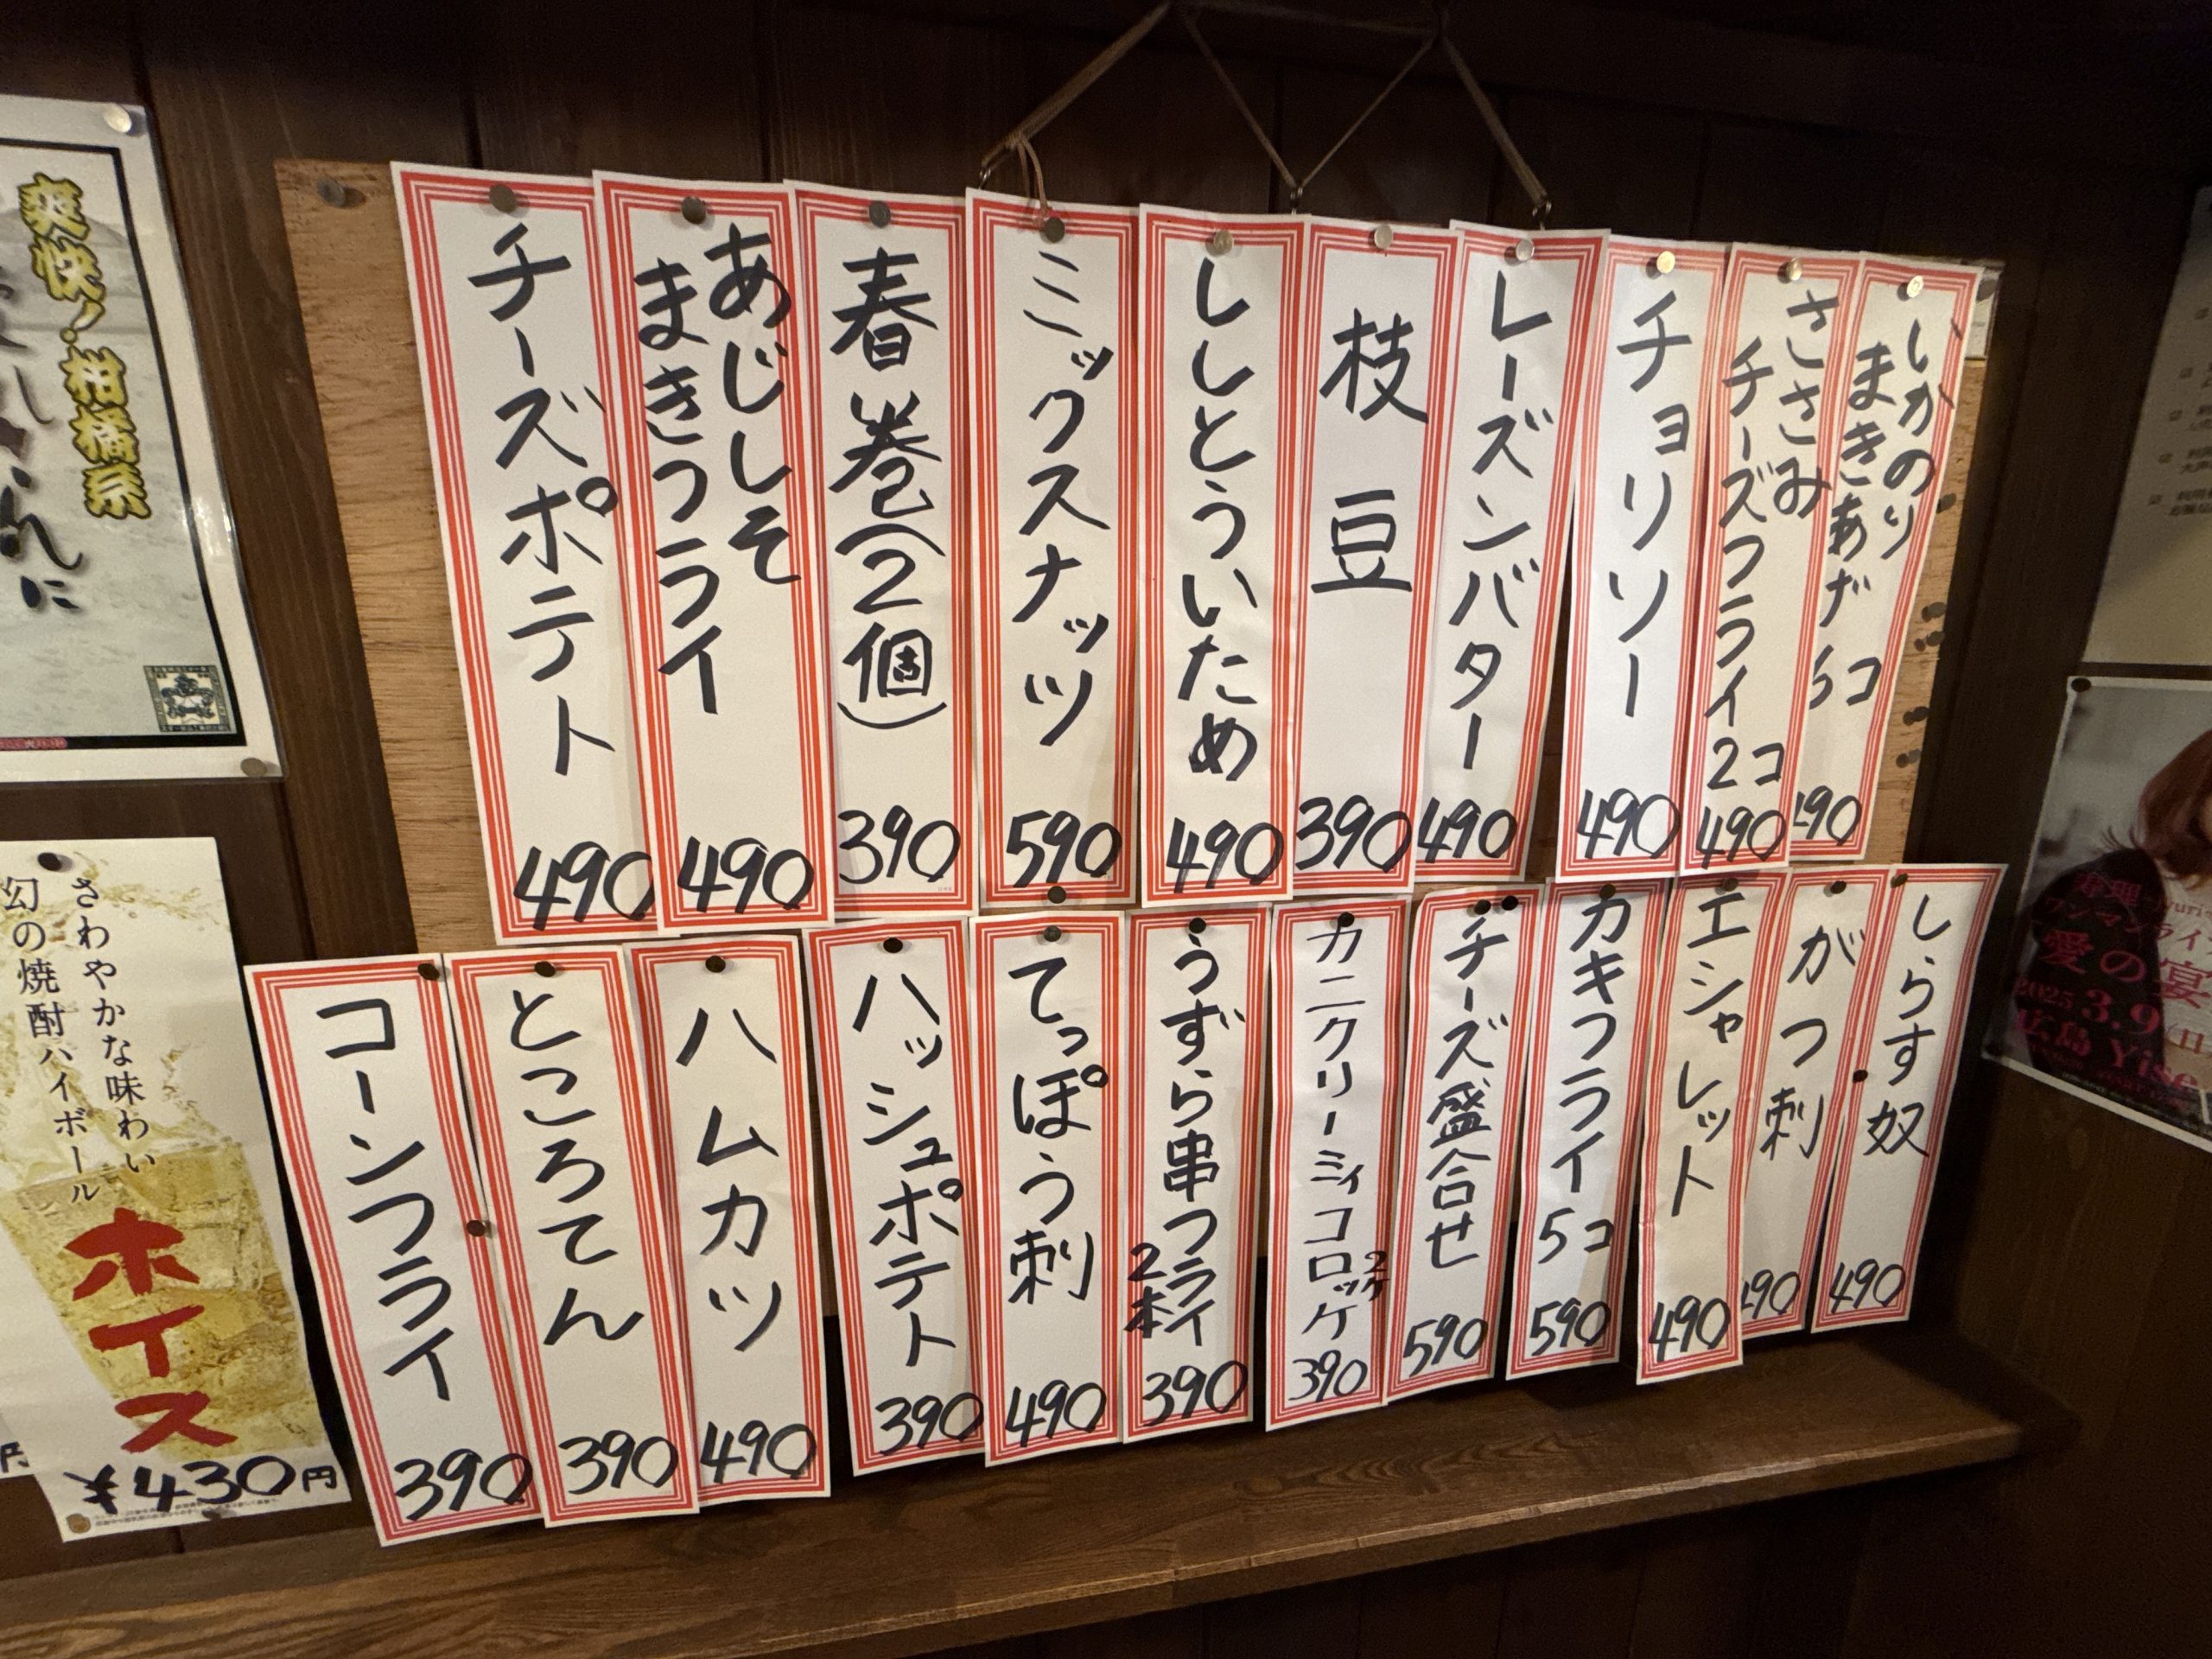 爽快!柑橘系
さわやかな味わい
幻の焼酎ハイボール
ホイス
¥430円
いかのり
まきあげ
5コ
490
ささみ
チーズフライ2コ
490
チョリソー
490
レーズンバター
490
枝豆
390
ししとういため
490
ミックスナッツ
590
春巻(2個)
390
あじしそ
まきフライ
490
チーズポテト
490
しらす奴
490
がつ刺
490
エシャレット
490
カキフライ5コ
590
チーズ盛合せ
590
カニクリーミィコロッケ
2ケ
390
うずら串フライ
2本
390
てっぽう刺
490
ハッシュポテト
390
ハムカツ
490
ところてん
390
コーンフライ
390
愛の宴
2025.3.9(日
広島 Yise